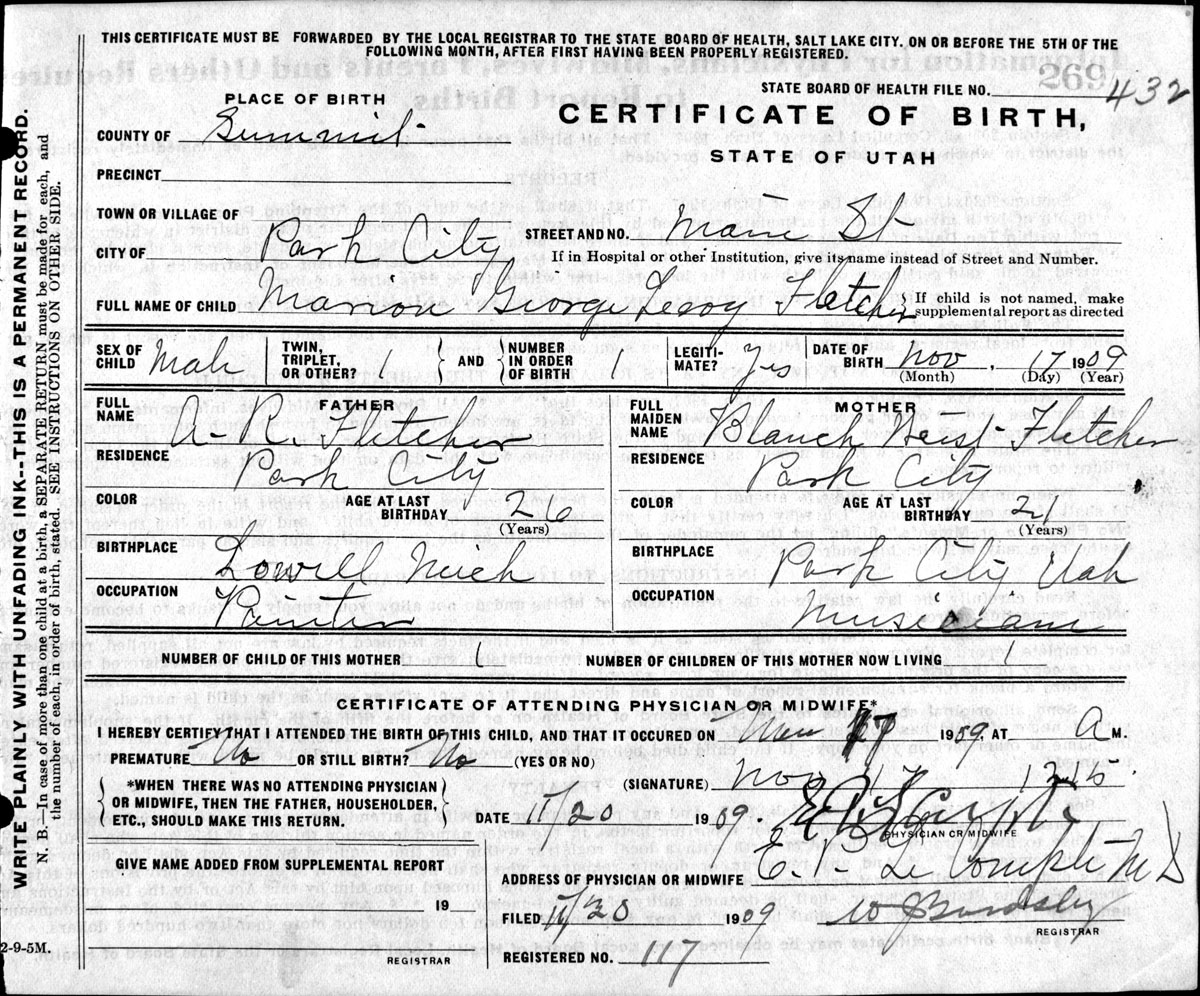 THIS CERTIFICATE MUST BE FORWARDED BY THE LOCAL REGISTRAR TO THE STATE BOARD OF HEALTH, SALT LAKE CITY. ON OR BEFORE THE 5TH OF THE
FOLLOWING MONTH, AFTER FIRST HAVING BEEN PROPERLY REGISTERED.
WRITE PLAINLY WITH UNFADING INK--THIS IS A PERMANENT RECORD.
N. B. In case of more than one child at a birth, a SEPARATE RETURN must be made for each, and
the number of each, in order of birth, stated. SEE INSTRUCTIONS ON OTHER SIDE.
269
STATE BOARD OF HEALTH FILE NO. 432
PLACE OF BIRTH
CERTIFICATE OF BIRTH,
STATE OF UTAH
COUNTY OF Summit
PRECINCT
TOWN OR VILLAGE OF
CITY OF Park City
STREET AND NO. Main St
If in Hospital or other Institution, give its name instead of Street and Number.
FULL NAME OF CHILD Marion George Leroy Fletcher
If child is not named, make
supplemental report as directed
SEX OF CHILD Male TWIN, TRIPLET, OR OTHER? 1 AND NUMBER IN ORDER OF BIRTH 1 LEGITIMATE? yes DATE OF BIRTH Nov 17 1909
(Month) (Day) (Year)
FATHER
FULL NAME A. R. Fletcher
RESIDENCE Park City
COLOR AGE AT LAST BIRTHDAY 26
(Years)
BIRTHPLACE Lowell Mich
OCCUPATION Painter
MOTHER
FULL MAIDEN NAME Blanch Fletcher
RESIDENCE Park City
COLOR AGE AT LAST BIRTHDAY 21
(Years)
BIRTHPLACE Park City Utah
OCCUPATION Musician
NUMBER OF CHILD OF THIS MOTHER 1 NUMBER OF CHILDREN OF THIS MOTHER NOW LIVING 1
CERTIFICATE OF ATTENDING PHYSICIAN OR MIDWIFE*
I HEREBY CERTIFY THAT I ATTENDED THE BIRTH OF THIS CHILD, AND THAT IT OCCURED ON 1909. AT A M.
PREMATURE No OR STILL BIRTH? No (YES OR NO)
(SIGNATURE) Nov 17 12 15
*WHEN THERE WAS NO ATTENDING PHYSICIAN
OR MIDWIFE, THEN THE FATHER, HOUSEHOLDER,
ETC., SHOULD MAKE THIS RETURN.
DATE 11/20 1909.
PHYSICIAN OR MIDWIFE
GIVE NAME ADDED FROM SUPPLEMENTAL REPORT
19
REGISTRAR
ADDRESS OF PHYSICIAN OR MIDWIFE E. Le Compte MD
FILED 11/20 1909
REGISTRAR
REGISTERED NO. 117
2-9-5M.